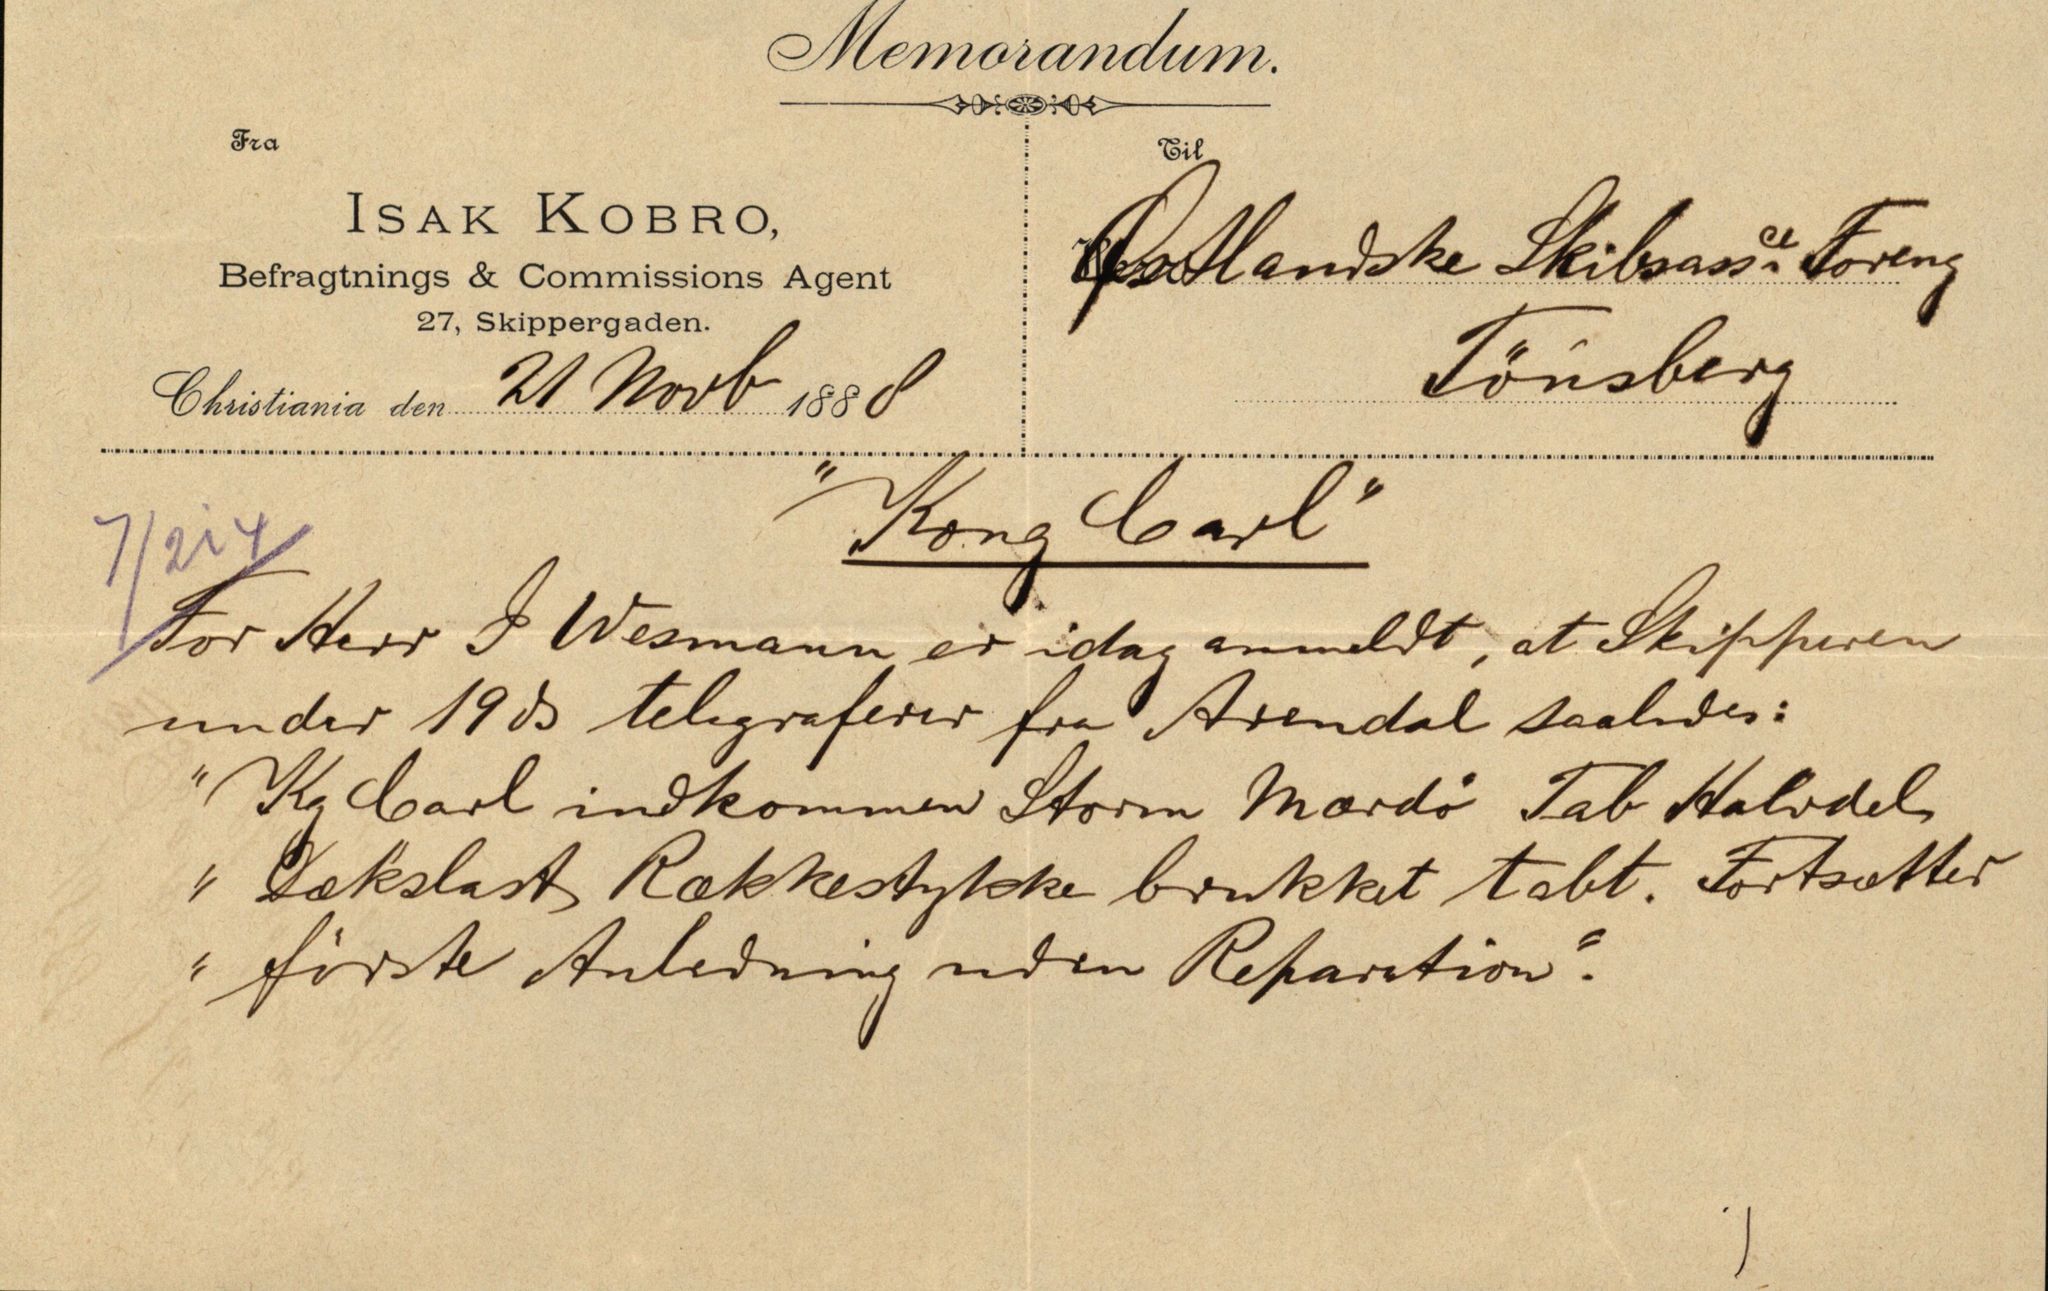 Memorandum.
Fra
Til
ISAK KOBRO,
Befragtnings & Commissions Agent
27, Skippergaden.
Christiania den 21 Novb 1888
Østlandske Skibsassce Foreng
Tönsberg
"Kong Carl"
7/214
For Herr J Wesmann er idag anmeldt, at Skipperen
under 19 ds telegraferer fra Arendal saaledes:
"Kg Carl indkommen Storm Mærdö Tab Halvdel
" Dækslast Rækkestykke brukket tabt. Fortsætter
" förste Anledning uden Reparation".